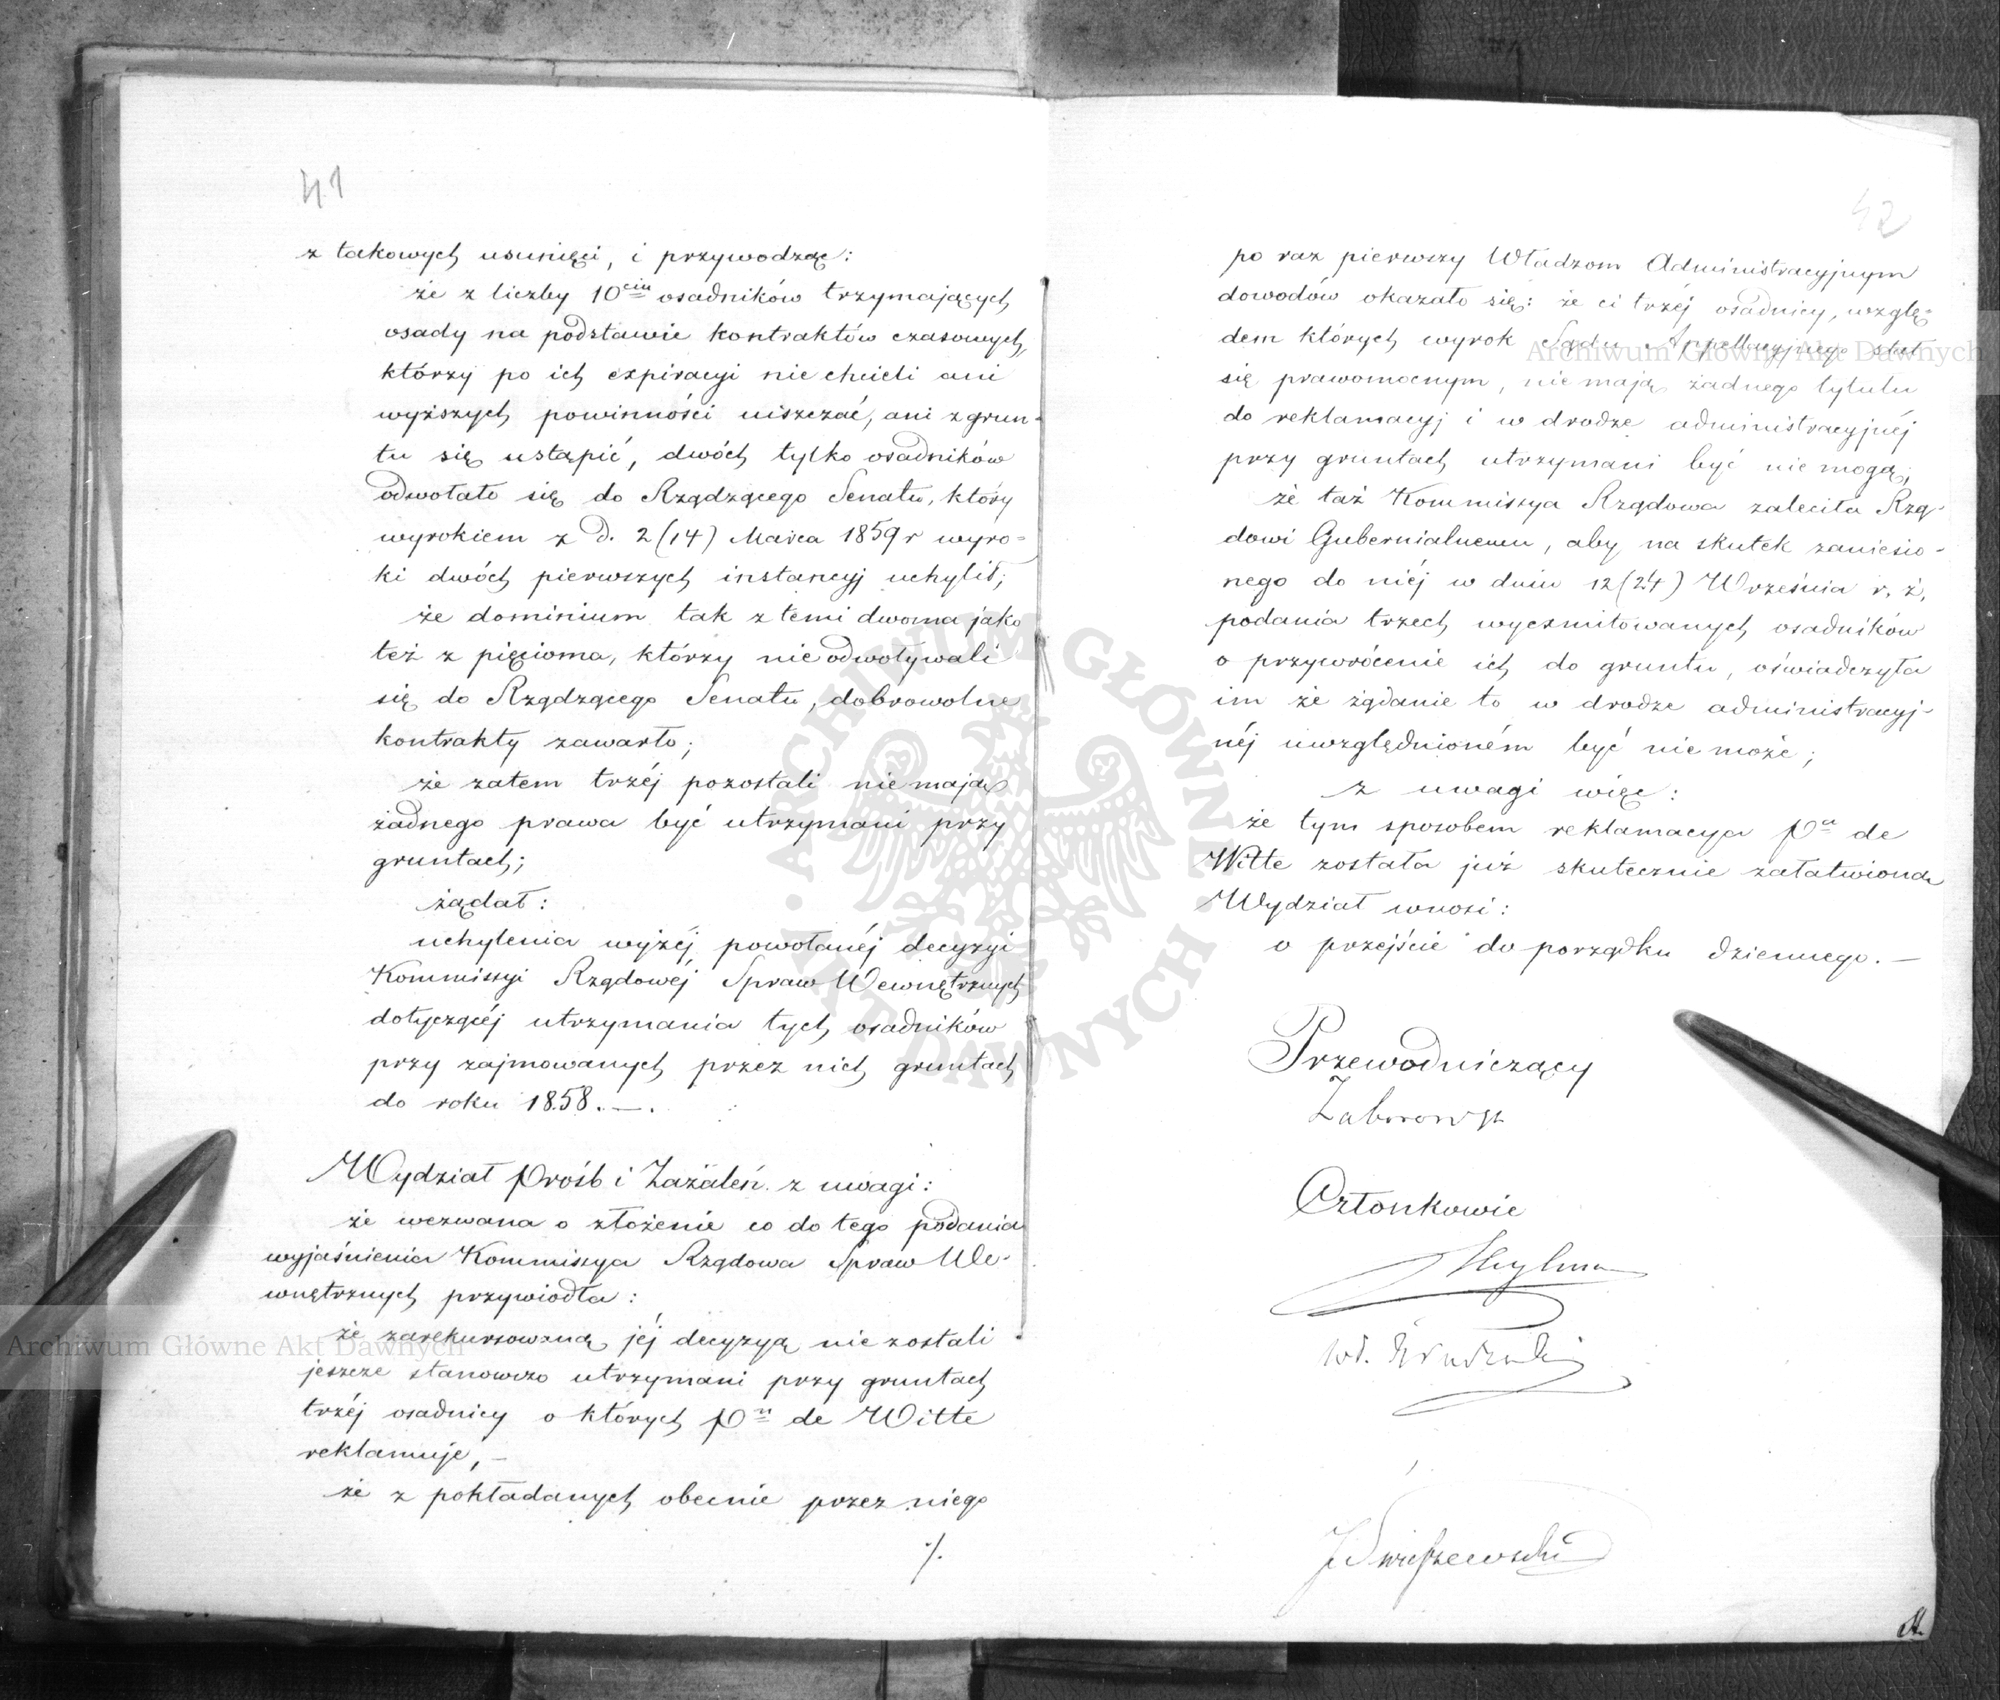 41
z takowych usunięci, i przywodząc:
że z liczby 10ciu osadników trzymających
osady na podstawie kontraktów czasowych,
którzy po ich expiracyi nie chcieli ani
wyższych powinności uiszczać, ani z grun-
tu się ustąpić, dwóch tylko osadników
odwołało się do Rządzącego Senatu, który
wyrokiem z d. 2 (14) Marca 1859 r wyro-
ki dwóch pierwszych instancyj uchylił;
że dominium tak z temi dwoma jako
też z pięcioma, którzy nie odwoływali
się do Rządzącego Senatu, dobrowolne
kontrakty zawarło;
że zatem trzéj pozostali nie mają
żadnego prawa być utrzymani przy
gruntach;
żądał:
uchylenia wyżéj powołanéj decyzyi
Kommissyi Rządowéj Spraw Wewnętrznych
dotyczącéj utrzymania tych osadników
przy zajmowanych przez nich gruntach
do roku 1858. —.
Wydział Próśb i Zażaleń z uwagi:
że wezwana o złożenie co do tego podania
wyjaśnienia Kommissya Rządowa Spraw We-
wnętrznych przywiodła:
że zarekursowaną jéj decyzyą nie zostali
jeszcze stanowczo utrzymani przy gruntach
trzéj osadnicy o których Pn de Witte
reklamuje, —
że z pokładanych obecnie przez niego
./.
42
po raz pierwszy Władzom Administracyjnym
dowodów okazało się: że ci trzéj osadnicy, wzglę-
dem których wyrok Sądu Appellacyjnego stał
się prawomocnym, nie mają żadnego tytułu
do reklamacyj i w drodze administracyjnéj
przy gruntach utrzymani być nie mogą;
że taż Kommissya Rządowa zaleciła Rzą-
dowi Gubernialnemu, aby na skutek zaniesio-
nego do niéj w dniu 12 (24) Września r. ż.
podania trzech wyexmitowanych osadników
o przywrócenie ich do gruntu, oświadczyła
im że żądanie to w drodze administracyj-
néj uwzględnioném być nie może;
z uwagi więc:
że tym sposobem reklamacya Pa de
Witte została już skutecznie załatwioną
Wydział wnosi:
o przejście do porządku dziennego. —
Przewodniczący
Członkowie
Archiwum Główne Akt Dawnych
Archiwum Główne Akt Dawnych
ARCHIWUM GŁÓWNE AKT DAWNYCH